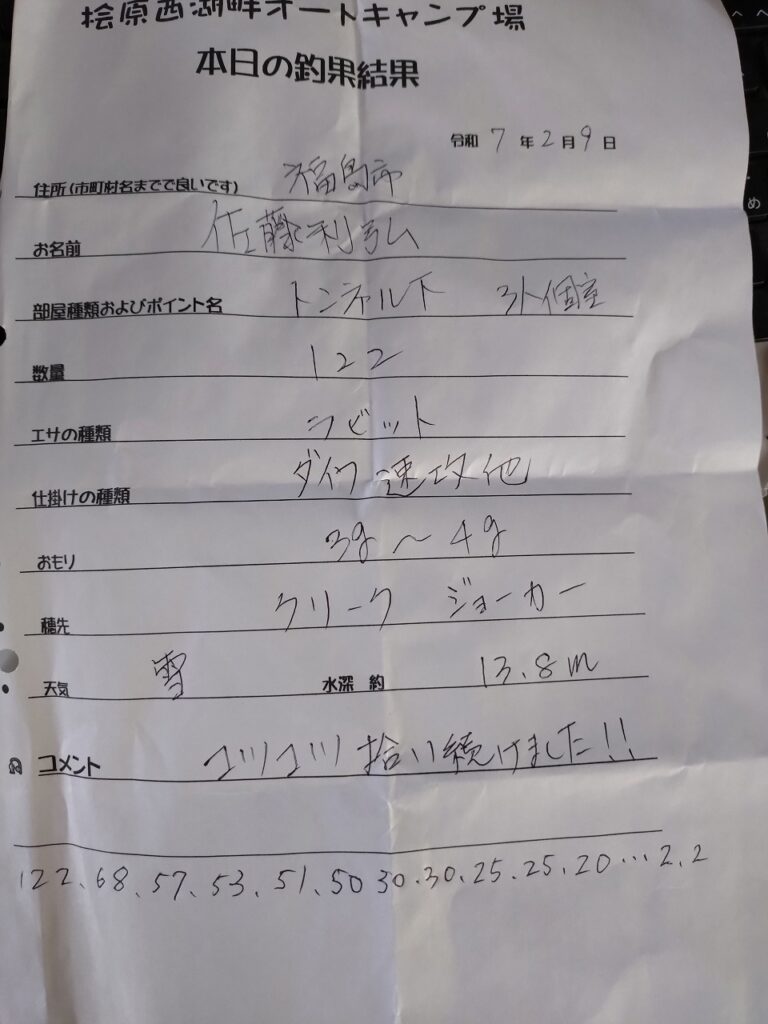 桧原西湖畔オートキャンプ場
本日の釣果結果
令和 7 年 2 月 9 日
住所(市町村名までで良いです) 福島市
お名前 佐藤利弘
部屋種類およびポイント名 トンネル下 個室
数量 122
エサの種類 ラビット
仕掛けの種類 ダイワ 速攻他
おもり 3g〜4g
穂先 クリーク ジョーカー
天気 雪 水深 約 13.8m
コメント コツコツ拾い続けました!!
122、68、57、53、51、50 30、30、25、25、20…2、2